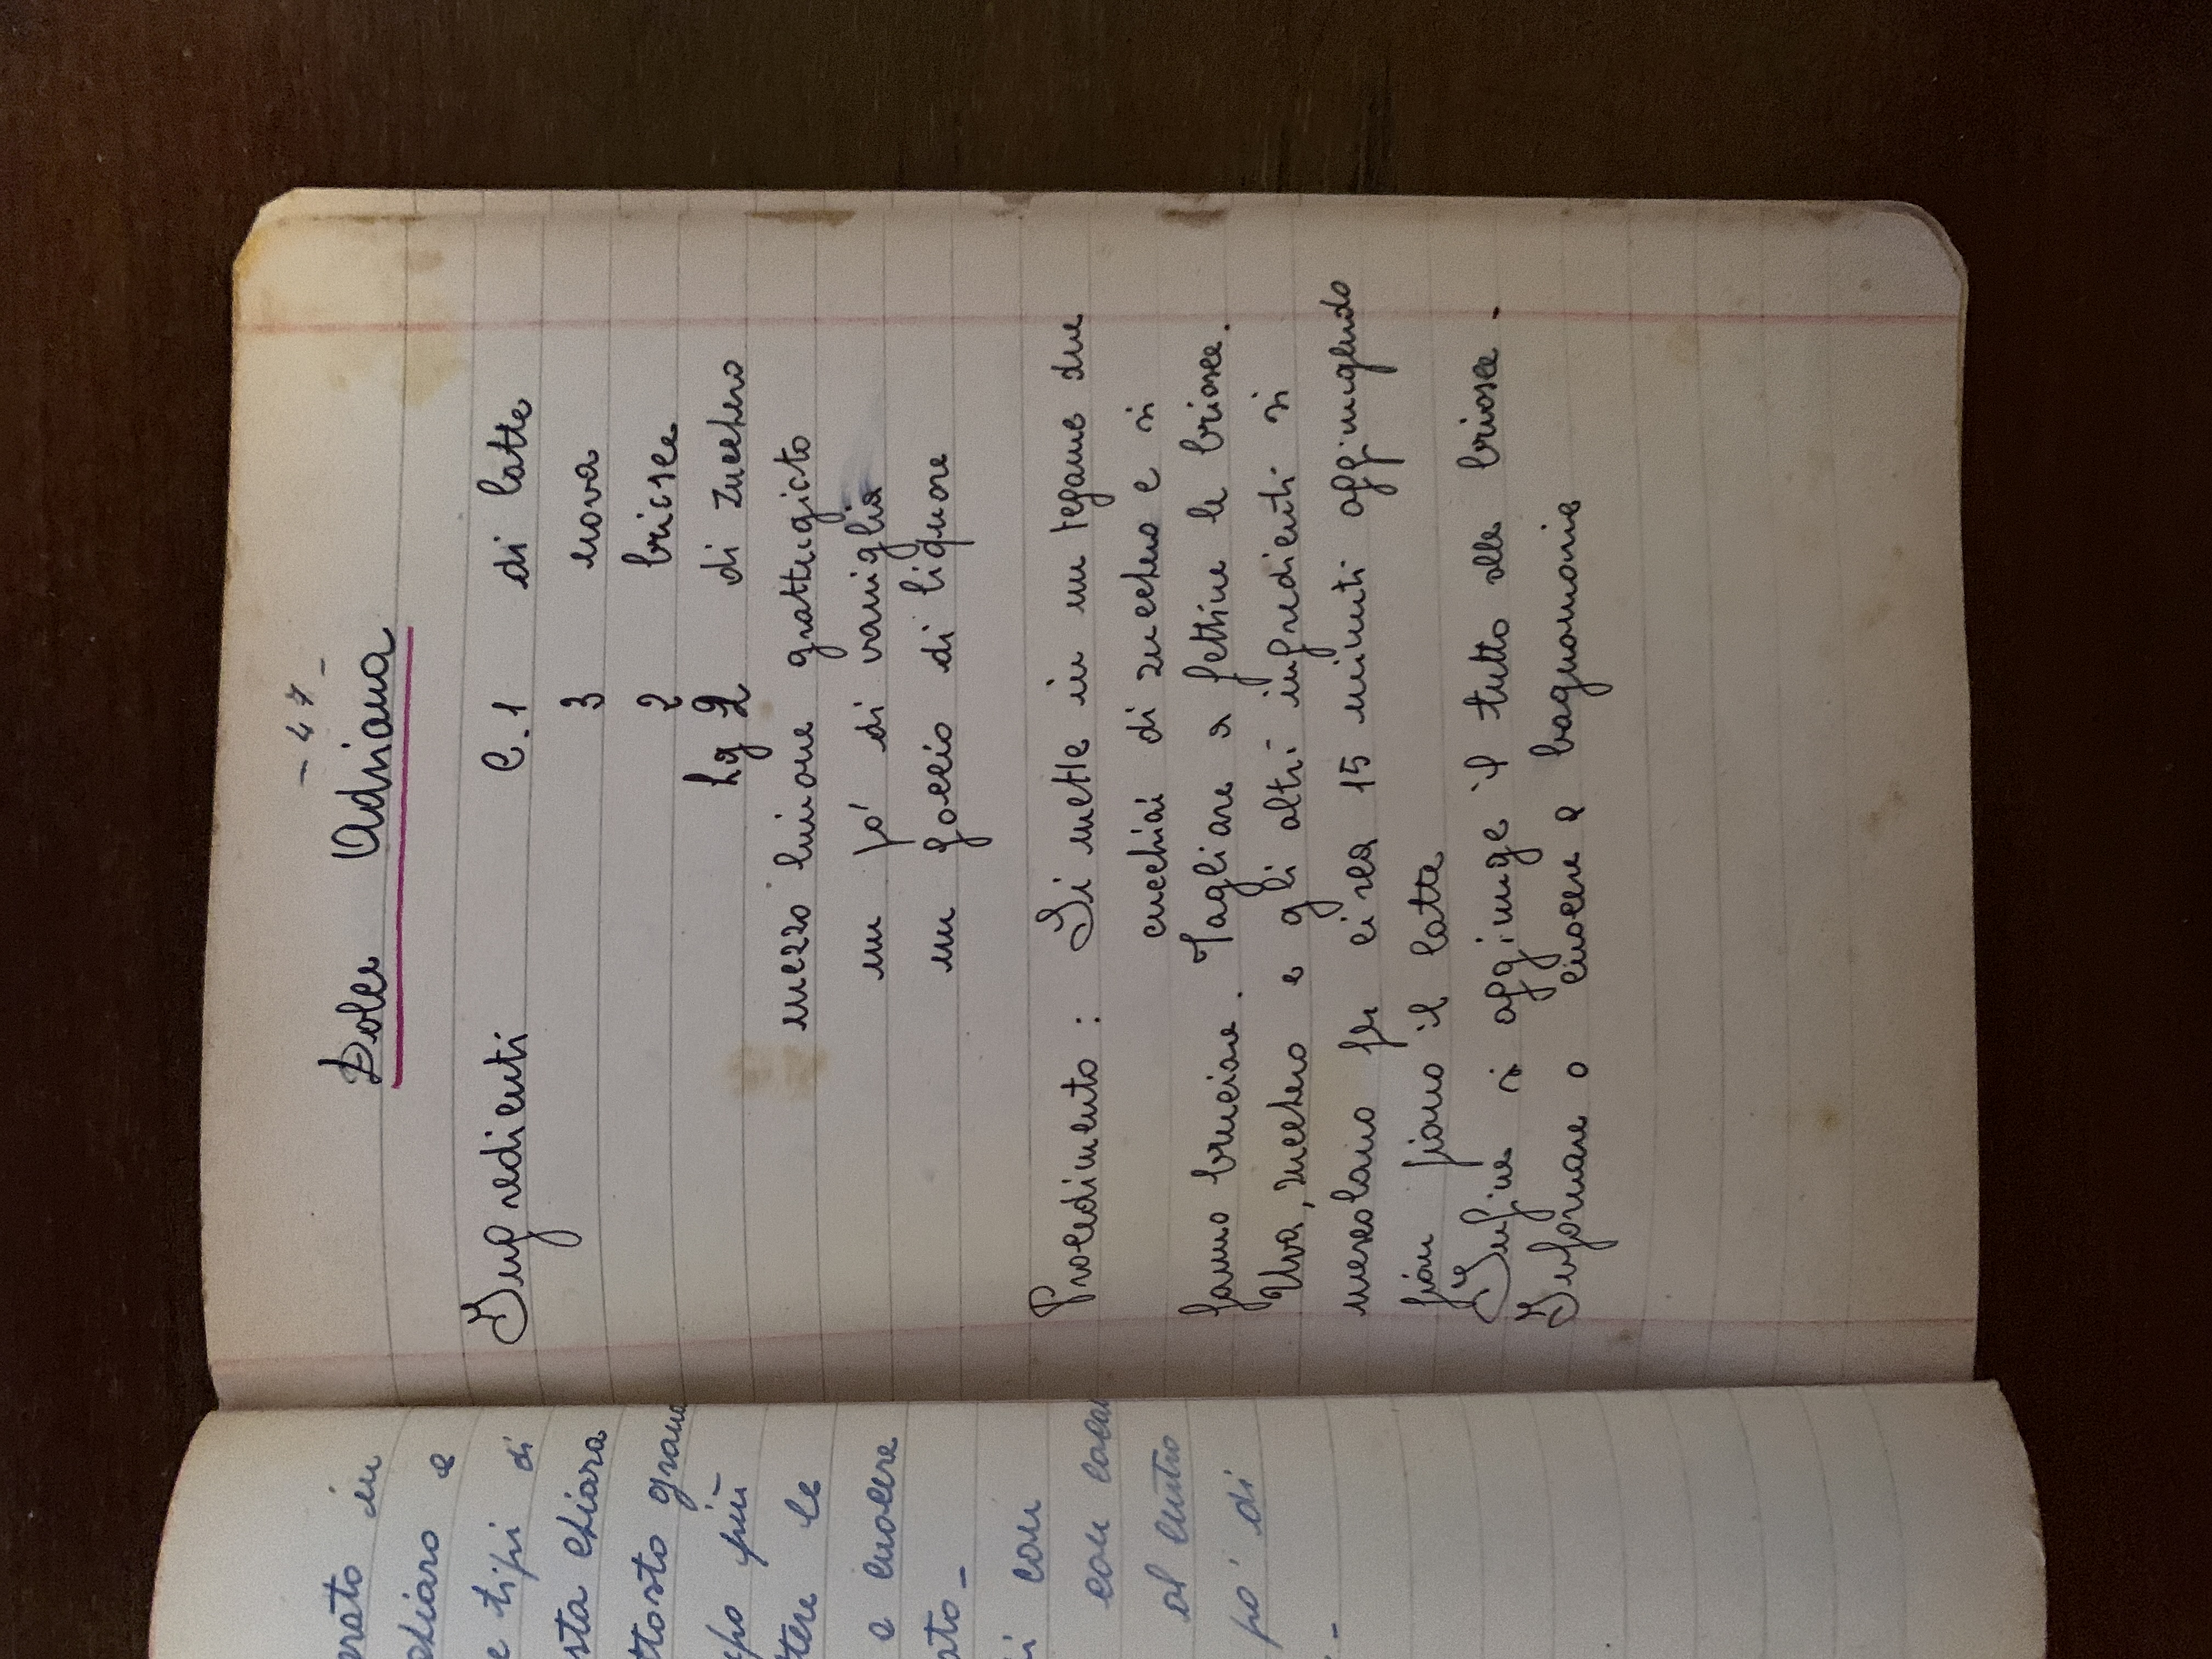 erato in
chiaro e
e tipi di
sta chiara
ttosto grand
po più
ttere le
a cuocere
ato _
i con
con caca
al centro
po' di
- 47 _
Dolce Adriana
Ingredienti l. 1 di latte
3 uova
2 briosce
hg 2 di zucchero
mezzo limone grattugiato
un po' di vaniglia
un goccio di liquore
Procedimento : Si mette in un tegame due
cucchiai di zucchero e si
fanno bruciare. Tagliare a fettine le briosce.
Uva, zucchero e gli altri ingredienti si
mescolano per circa 15 minuti aggiungendo
pian piano il latte
Infine si aggiunge il tutto alle briosce -
Infornare o cuocere a bagnomaria